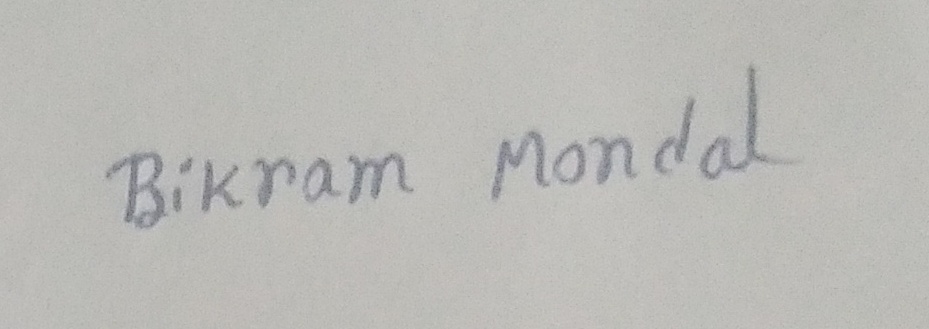 Bikram Mondal